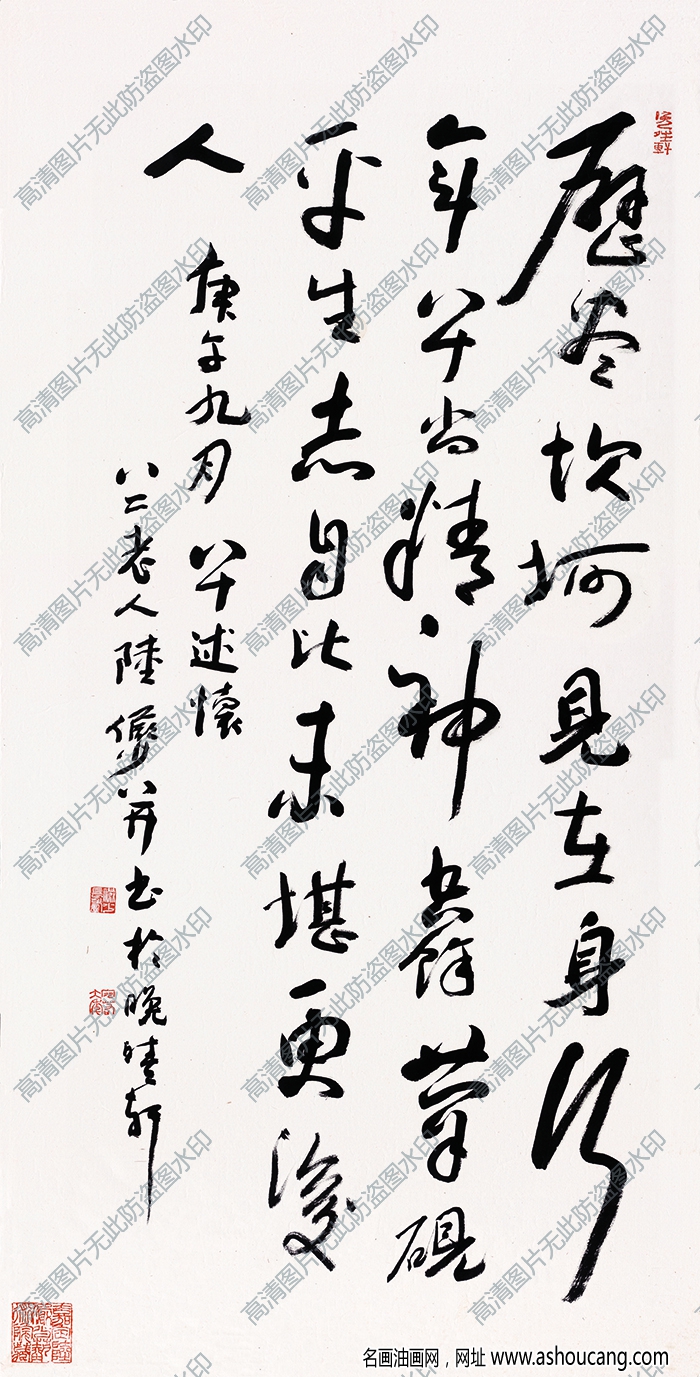 歷盡坎坷見在身行
年八十尚精神餘筆硯
平生志自比未堪更後
人 庚午九月 八十述懷
八二老人陸儼少并書於晚晴軒
高清图片无此防盗图水印
名画油画网，网址 www.ashoucang.com